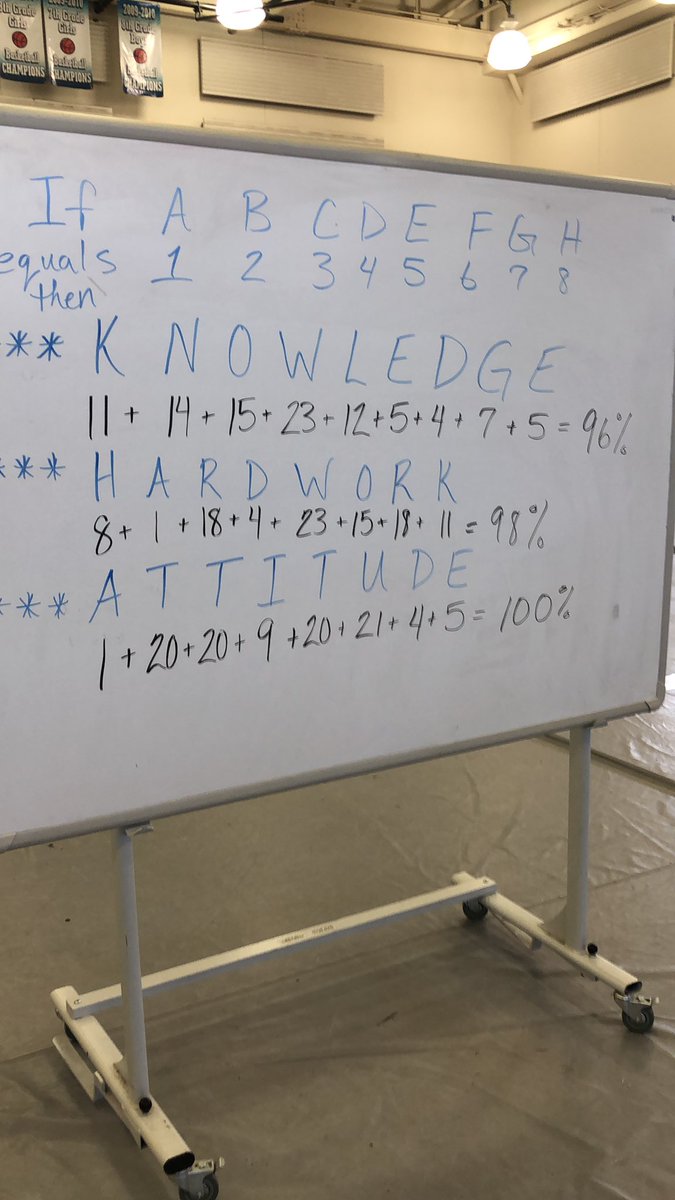 7th Grade
Girls
Basketball
CHAMPIONS
2009-2010
Basketball
CHAMPIONS
If A B C D E F G H
equals 1 2 3 4 5 6 7 8
then
** K N O W L E D G E
11 + 14 + 15 + 23 + 12 + 5 + 4 + 7 + 5 = 96%
*** H A R D W O R K
8 + 1 + 18 + 4 + 23 + 15 + 18 + 11 = 98%
*** A T T I T U D E
1 + 20 + 20 + 9 + 20 + 21 + 4 + 5 = 100%